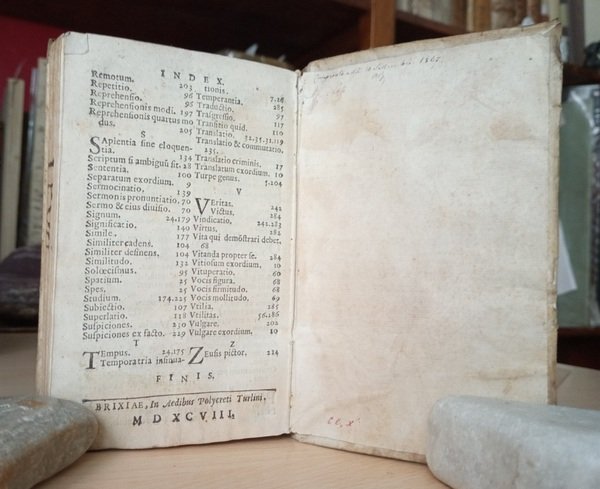 INDEX.
Remotum. 203
Repetitio. 96
Reprehensio. 96
Reprehensionis modi. 197
Reprehensionis quartus mo
dus. 205
S
SApientia sine eloquen-
tia. 134
Scriptum si ambigus sit. 28
Sententia. 100
Separatum exordium. 9
Sermocinatio. 139
Sermonis pronuntiatio. 70
Sermo & eius diuisio. 70
Signum. 24.179
Significatio. 140
Simile. 177
Similiter cadens. 104
Similiter desinens. 104
Similitudo. 132
Solœcismus. 95
Spatium. 25
Spes. 25
Studium. 174.225
Subiectio. 107
Superlatio. 218
Suspiciones. 230
Suspiciones ex facto. 229
T
TEmpus. 24.175
Tempora tria insinua-
tionis. 7.26
Temperantia.
Traductio. 285
Trasgressio. 97
Transitio quid. 117
Translatio. 110
32.35.31.119
Translatio & commutatio.
235.
Translatio criminis. 17
Translatum exordium. 10
Turpe genus. 5.204
V
VEritas. 242
Victus. 284
Vindicatio. 242.283
Virtus. 282
Vita qui demōstrari debet.
68
Vitanda propter se. 284
Vitiosum exordium. 10
Vituperatio. 60
Vocis figura. 68
Vocis firmitudo. 68
Vocis mollitudo. 69
Vtilia. 285
Vtilitas. 56.286
Vulgare. 202
Vulgare exordium. 10
Z
ZEusis pictor. 224
FINIS.
BRIXIAE, In Aedibus Polycreti Turlini,
MDXCVIII.